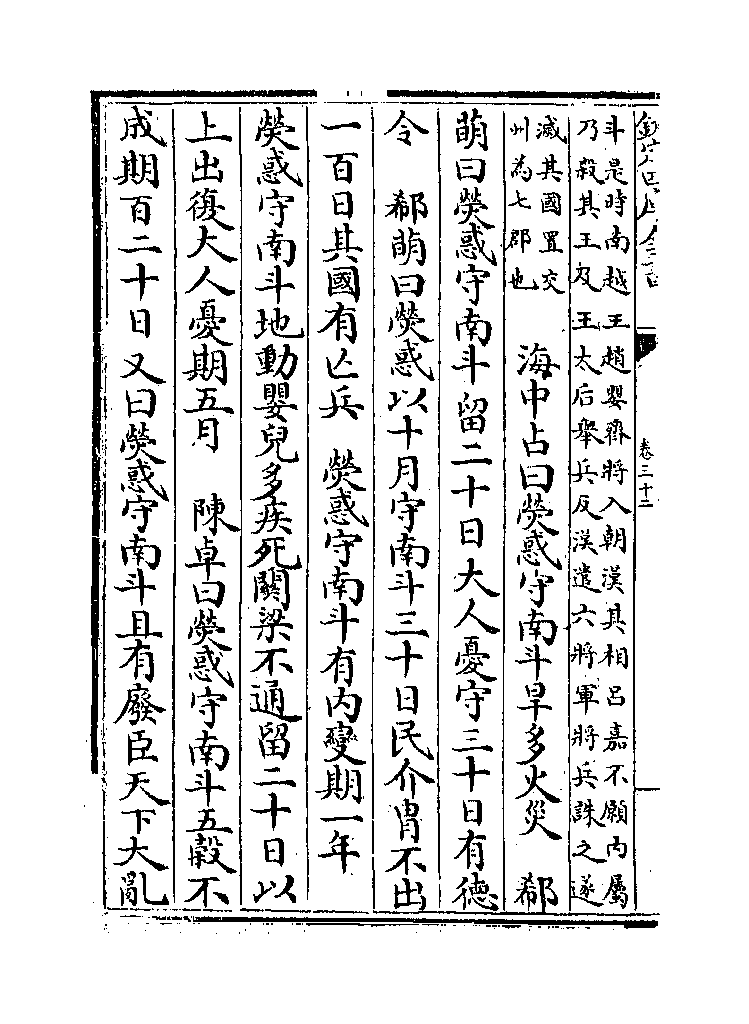 卷三十二
斗是時南越王趙嬰齊將入朝漢其相呂嘉不願內屬
乃殺其王及王太后舉兵反漢遣六將軍將兵誅之遂
滅其國置交
州為七郡也
海中占曰熒惑守南斗旱多火災 郗
萌曰熒惑守南斗留二十日大人憂守三十日有德
令 郗萌曰熒惑以十月守南斗三十日民介胄不出
一百日其國有亡兵 熒惑守南斗有內變期一年
熒惑守南斗地動嬰兒多疾死關梁不通留二十日以
上出復大人憂期五月 陳卓曰熒惑守南斗五穀不
成期百二十日又曰熒惑守南斗且有廢臣天下大亂